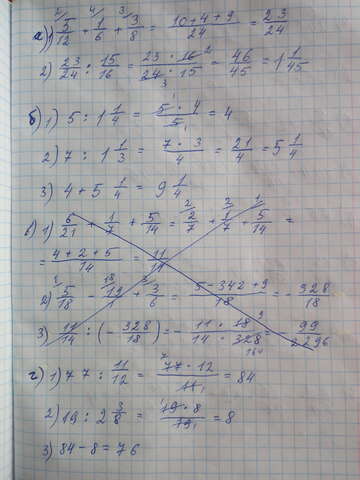 а) 1) 5/12 + 1/6 + 3/8 = (10+4+9)/24 = 23/24
2) 23/24 : 15/16 = (23 · 16)/(24 · 15) = 46/45 = 1 1/45
б) 1) 5 : 1 1/4 = (5 · 4)/5 = 4
2) 7 : 1 1/3 = (7 · 3)/4 = 21/4 = 5 1/4
3) 4 + 5 1/4 = 9 1/4
в) 1) 6/21 + 1/7 + 5/14 = 2/7 + 1/7 + 5/14 =
= (4 + 2 + 5)/14 = 11/14
2) 5/18 - 19/1 + 3/6 = (5 - 342 + 9)/18 = - 328/18
3) 11/14 : (- 328/18) = - (11 · 18)/(14 · 328) = - 99/2296
г) 1) 77 : 11/12 = (77 · 12)/11 = 84
2) 19 : 2 3/8 = (19 · 8)/19 = 8
3) 84 - 8 = 76